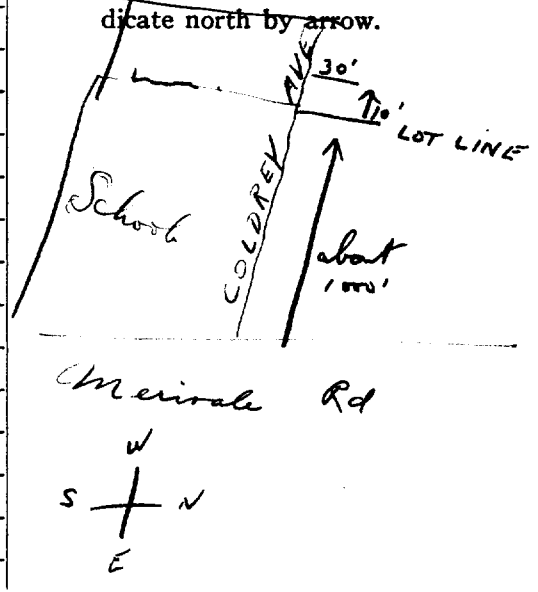 dicate north by arrow.
30'
10'
LOT LINE
COLDREY AVE
School
about
1000'
Merivale Rd
W
S N
E